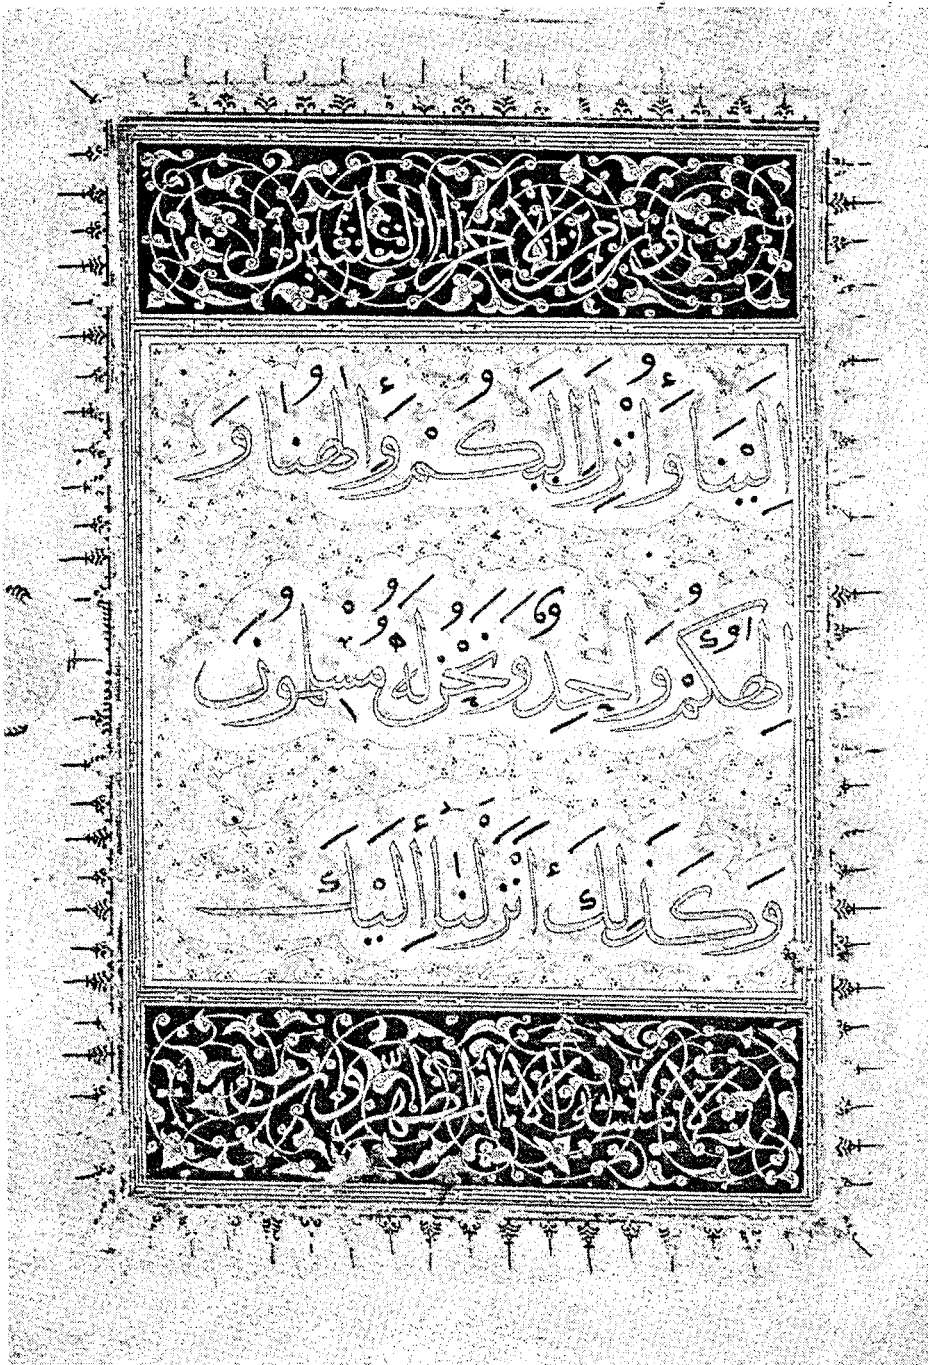 ون من الاجزا الثلثين
إِلَيْنَا وَأُنْزِلَ إِلَيْكُمْ وَإِلٰهُنَا وَ
إِلٰهُكُمْ وَاحِدٌ وَنَحْنُ لَهُ مُسْلِمُونَ
وَكَذٰلِكَ أَنْزَلْنَا إِلَيْكَ
لا يمسه الا المطهرون